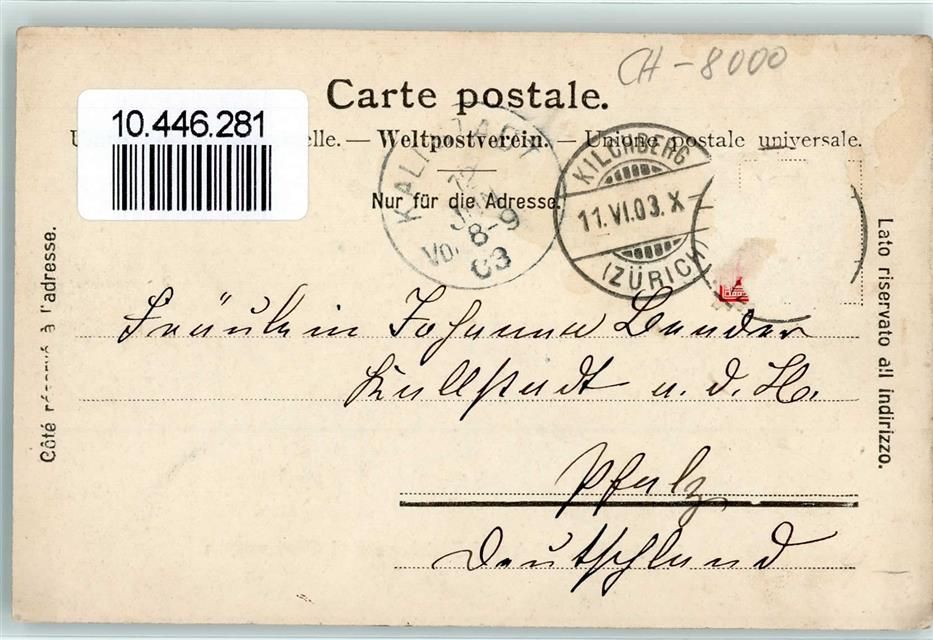 CH-8000
Carte postale.
10.446.281
U elle. — Weltpostverein. — Unione postale universale.
Nur für die Adresse.
KALLSTADT
Vor 8-9
03
KILCHBERG
11.VI.03.X
(ZÜRICH)
Côté réservé à l'adresse.
Lato riservato all indirizzo.
Fräulein Johanna Bender
Kallstadt a. d. H.
Pfalz
Deutschland